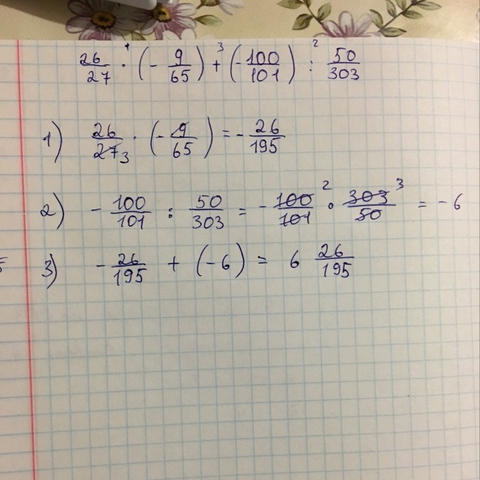 26/27 ·¹ (- 9/65) +³ (- 100/101) :² 50/303
1) 26/27 3 · (- 9/65) = - 26/195
2) - 100/101 : 50/303 = - 100/101 2 · 303/50 3 = - 6
3) - 26/195 + (-6) = 6 26/195